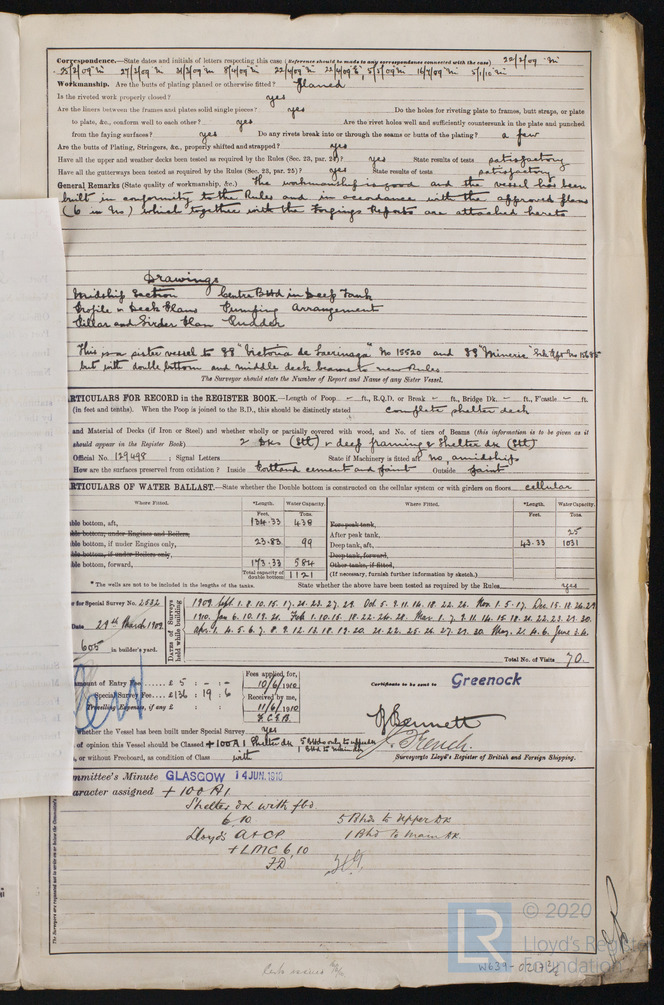 Correspondence.—State dates and initials of letters respecting this case (Reference should be made to any correspondence connected with the case) 20/2/09
27/2/09 8/4/09 22/4/09 16/7/09 5/1/10
Workmanship. Are the butts of plating planed or otherwise fitted? Planed
Is the riveted work properly closed? yes
Are the liners between the frames and plates solid single pieces? yes Do the holes for riveting plate to frames, butt straps, or plate
to plate, &c., conform well to each other? yes Are the rivet holes well and sufficiently countersunk in the plate and punched
from the faying surfaces? yes Do any rivets break into or through the seams or butts of the plating? a few
Are the butts of Plating, Stringers, &c., properly shifted and strapped? yes
Have all the upper and weather decks been tested as required by the Rules (Sec. 23, par. 25)? yes State results of tests satisfactory
Have all the gutterways been tested as required by the Rules (Sec. 23, par. 25)? yes State results of tests satisfactory
General Remarks (State quality of workmanship, &c.) The workmanship is good and the vessel has been
built in conformity to the Rules and in accordance with the approved plans
(6 in No) which together with the Forgings Reports are attached hereto
Drawings
Midship Section Centre Bhd in Deep Tank
Profile & Deck Plans Pumping Arrangement
Pillar and Girder Plan Rudder
This is a sister vessel to SS "Victoria de Larrinaga" No 15520 and SS "Mineric"
but with double bottom and middle deck beams to new Rules
The Surveyor should state the Number of Report and Name of any Sister Vessel.
ARTICULARS FOR RECORD in the REGISTER BOOK.—Length of Poop – ft., R.Q.D. or Break – ft., Bridge Dk. – ft., F'castle – ft.
(in feet and tenths). When the Poop is joined to the B.D., this should be distinctly stated complete shelter deck
and Material of Decks (if Iron or Steel) and whether wholly or partially covered with wood, and No. of tiers of Beams (this information is to be given as it
should appear in the Register Book) 2 Dks (Stl) & deep framing & Shelter dk (Stl)
Official No. 129498 ; Signal Letters State if Machinery is fitted aft no, amidships
How are the surfaces preserved from oxidation? Inside Portland cement and paint Outside paint
ARTICULARS OF WATER BALLAST.—State whether the Double bottom is constructed on the cellular system or with girders on floors cellular
Where Fitted. *Length. Water Capacity. Where Fitted. *Length. Water Capacity.
Feet. Tons. Feet. Tons.
ble bottom, aft, 134.33 438 Fore peak tank,
ble bottom, under Engines and Boilers, After peak tank, 25
ble bottom, if under Engines only, 23.83 99 Deep tank, aft, 43.33 1031
ble bottom, if under Boilers only, Deep tank, forward,
ble bottom, forward, 173.33 584 Other tanks, if fitted,
Total capacity of double bottom 1121 (If necessary, furnish further information by sketch.)
* The wells are not to be included in the lengths of the tanks. State whether the above have been tested as required by the Rules yes
r for Special Survey No. 2532
Date 29th March 1909
605 in builder's yard.
DATES of Surveys held while building
1909 Sept. 1. 8. 10. 15. 17. 21. 23. 27. 29. Oct 5. 9. 11. 14. 18. 22. 26. Nov. 1. 5. 17. Dec. 15. 18. 26. 29
1910. Jan 6. 10. 19. 21. Feb 1. 10. 15. 18. 22. 24. 28. Mar. 1. 7. 9. 11. 14. 15. 18. 21. 22. 23. 29. 30.
Apr. 1. 4. 5. 6. 7. 8. 9. 12. 13. 18. 19. 20. 21. 22. 25. 26. 27. 29. 30. May. 2. 4. 6. June 3. 6.
Total No. of Visits 70.
amount of Entry Fee .... £ 5 : - : - Fees applied for, 10/6/1910
Special Survey Fee.... £136 : 19 : 6 Received by me,
Travelling Expenses, if any £ : : 11/6/1910
Certificate to be sent to Greenock
whether the Vessel has been built under Special Survey yes
of opinion this Vessel should be Classed +100A1 Shelter dk 5 Bhds only to upper dk
1 Bhd to main dk
, or without Freeboard, as condition of Class with
Bennett
J. French.
Surveyor to Lloyd's Register of British and Foreign Shipping.
mmittee's Minute GLASGOW 14 JUN. 1910
aracter assigned + 100 A1
Shelter dk with fbd.
6.10 5 Bhds to Upper Dk
Lloyd's A & CP 1 Bhd to Main Dk.
+ LMC 6.10
FD
© 2020
LR Lloyd's Register
Foundation